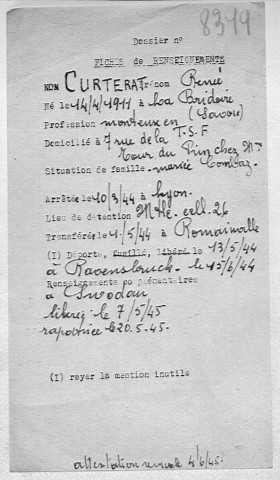 8379
Dossier n°
FICHES de RENSEIGNEMENTS
NOM CURTERAT Prénom Renée
Né le 14/4/1911 à La Bridoire
(Savoie)
Profession monteuse en
Domicilié à 7 rue de la T.S.F
chez Mme
Situation de famille - mariée Combaz
Arrêtée le 10/3/44 à Lyon.
Lieu de détention Mtluc cell. 26
Transférée le 1/5/44 à Romainville
(I) Déporté, fusillé, libéré le 13/5/44
à Ravensbruck - le 15/6/44
Renseignements complémentaires
à Swodau
libérée le 7/5/45
rapatriée le 20.5.45.
(I) rayer la mention inutile
attestation remise le 4/6/45.